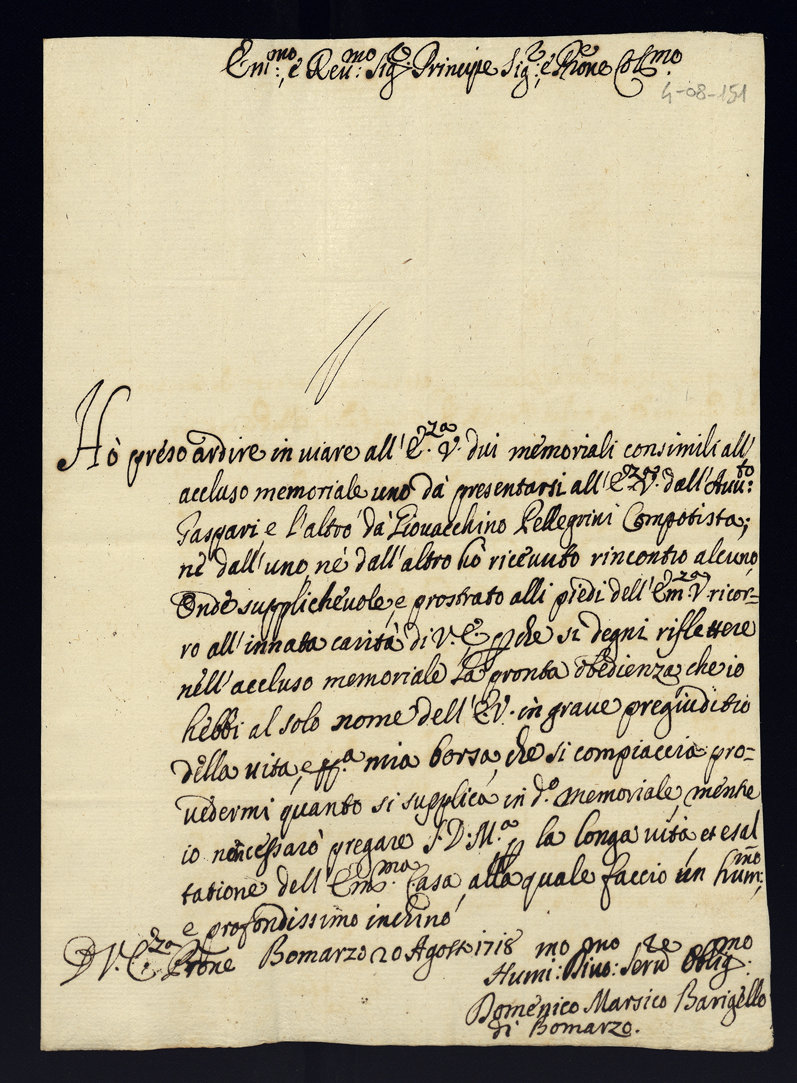 Em:mo, e Reu:mo Sig:re Principe Sig:re, e Prone Col:mo
4-08-151
Hò preso ardire in uiare all' E.za V. dui memoriali consimili all'
accluso memoriale uno dà presentarsi all' E.za V. dall' Auu:to
Gaspari e l'altro dà Giouacchino Pellegrini Compotista;
nè dall' uno, nè dall' altro hò riceuuto rincontro alcuno,
Onde supplicheuole, e prostrato alli piedi dell' Em.za V. ricor-
ro all' innata carità di V. E. che si degni riflettere
nell' accluso memoriale la pronta obedienza, che io
hebbi al solo nome dell' E.V. in graue pregiuditio
della uita, e mia borsa, che si compiaccia pro-
uedermi quanto si supplica in d.o memoriale, mentre
io non cessarò pregare S. D. M.a la longa uita, et esal
tatione dell' Em.ma Casa, alla quale faccio un hum:mo
e profondissimo inchino
D V. E.za Prone Bomarzo 20 Agosto 1718
Humi:mo Diuo:mo Seru:re Oblig:mo
Domenico Marsico Barigello
di Bomarzo.